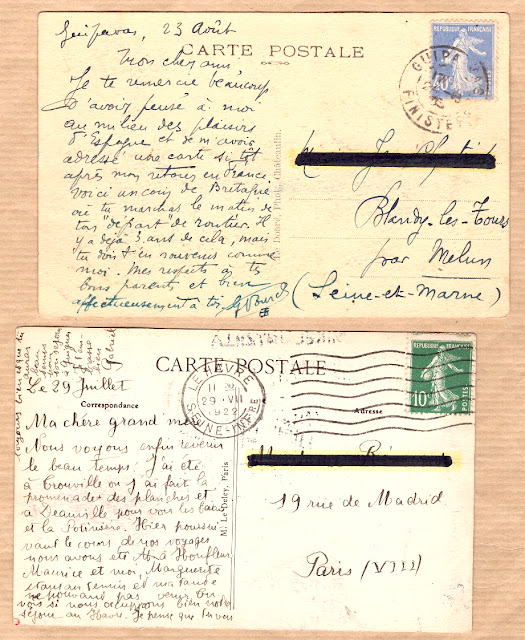 Guipavas, 23 Août
CARTE POSTALE
Mon cher ami
Je te remercie beaucoup
d'avoir pensé à moi
au milieu des plaisirs
d'Espagne et de m'avoir
adressé une carte sitôt
après mon retour en France.
Voici un coin de Bretagne
où tu marchas le matin de
ton "départ" de routier. Il
y a déjà 3 ans de cela, mais
tu dois t'en souvenir comme
moi. Mes respects à tes
bons parents et bien
affectueusement à toi
REPUBLIQUE FRANÇAISE
40c
GUIPAVAS
FINISTERE
M
Blandy-les-Tours
par Melun
(Seine-et-Marne)
CARTE POSTALE
Le 29 Juillet
Correspondance
Adresse
LE HAVRE
29 VII
1922
SEINE-INFRE
REPUBLIQUE FRANÇAISE
10c
POSTES
Ma chère grand mère
Nous voyons enfin revenir
le beau temps. J'ai été
à Trouville où j'ai fait la
promenade des planches et
à Deauville pour voir les
et la Potinière. Hier poursui-
vant le cours de nos voyages
nous avons été à Honfleur,
Maurice et moi, Marguerite
étant
ne pouvant pas venir. Tu
vois si nous occupons bien notre
séjour au Havre. Je pense que tu vas
M. Le Deley, Paris
19 rue de Madrid
Paris (VIII)
Gabriel